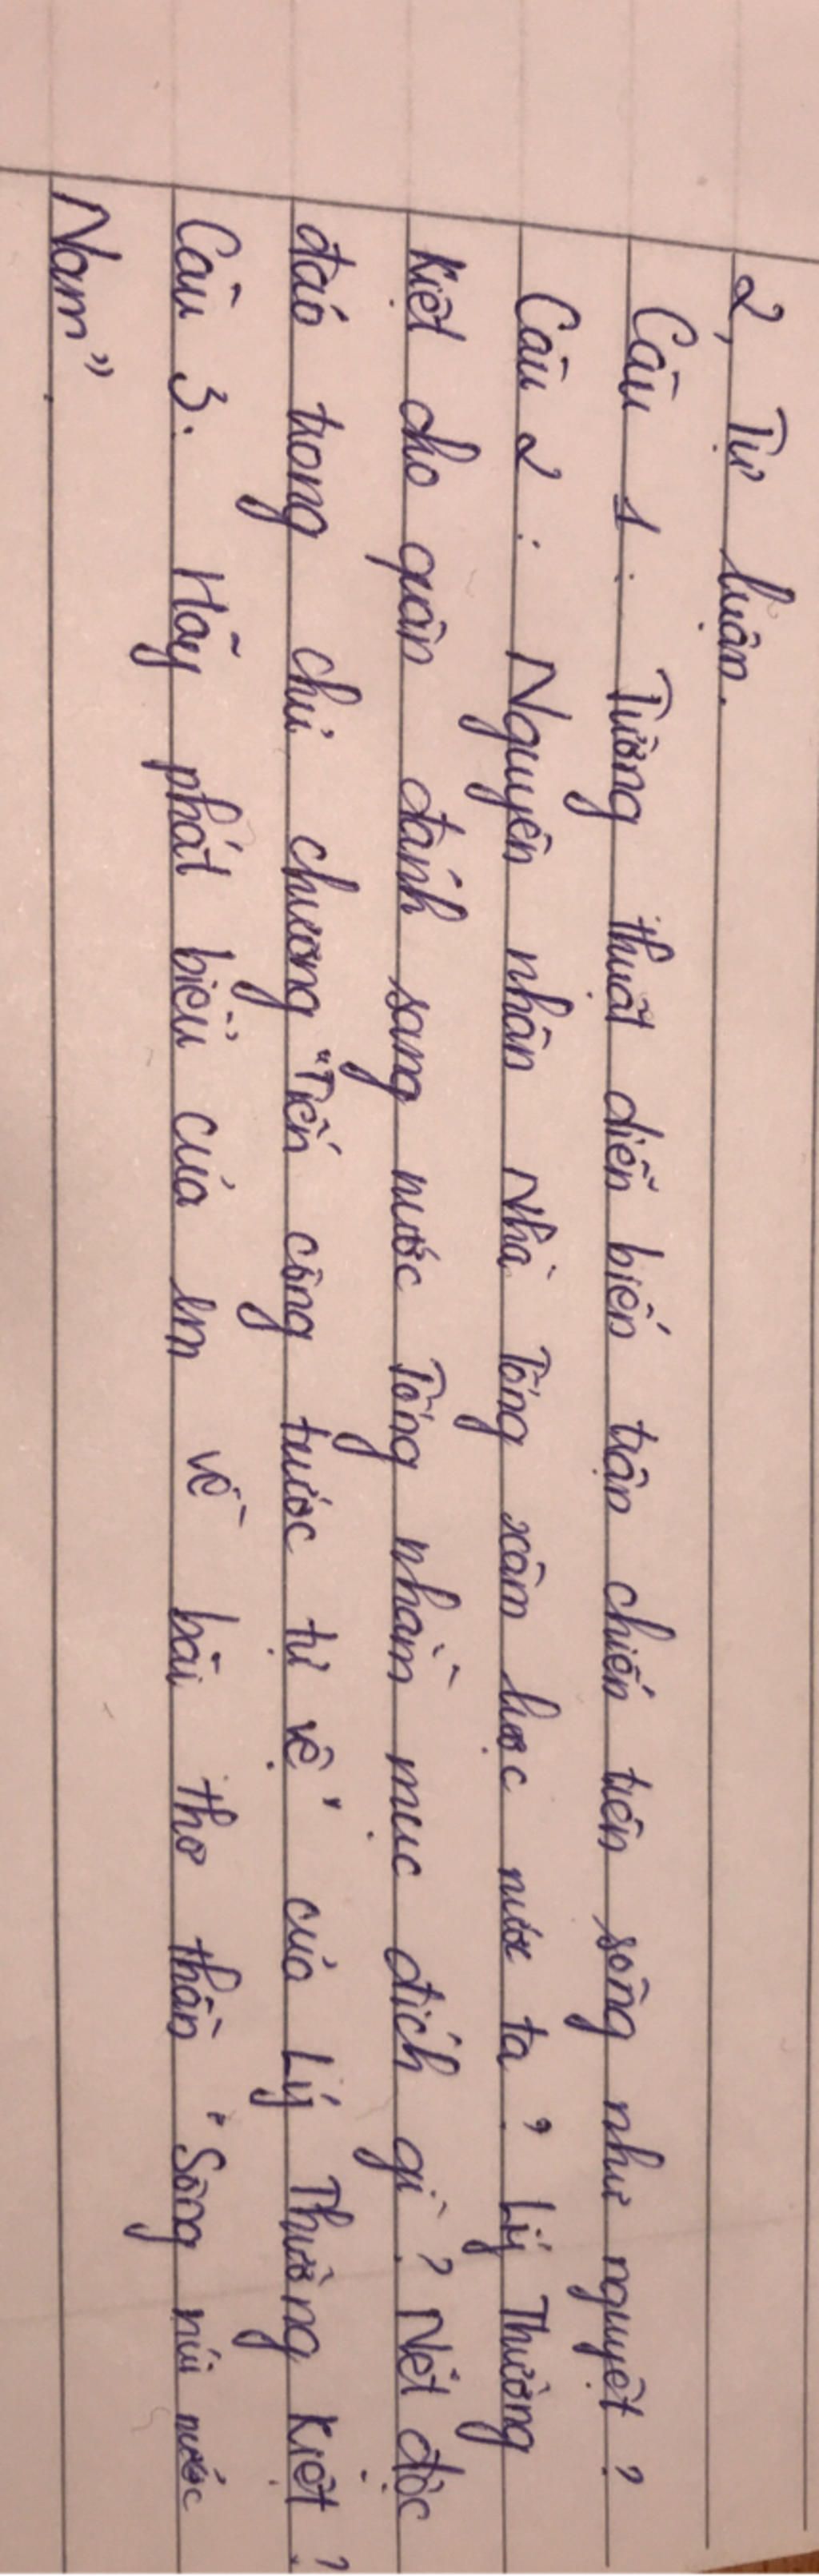 2, Tự luận.
Câu 1: Tường thuật diễn biến trận chiến trên sông như nguyệt?
Câu 2: Nguyên nhân Nhà Tống xâm lược nước ta? Lý Thường
Kiệt cho quân đánh sang nước Tống nhằm mục đích gì? Nét độc
đáo trong chủ chương "Tiến công trước tự vệ" của Lý Thường Kiệt?
Câu 3. Hãy phát biểu của em về bài thơ thần "Sông núi nước
Nam".